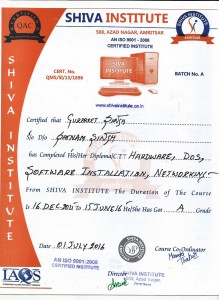 SHIVA INSTITUTE
588, AZAD NAGAR, AMRITSAR
AN ISO 9001 : 2008
CERTIFIED INSTITUTE
QAC
CERT. No.
BATCH No. A
www.shivainstitute.co.in
SHIVA INSTITUTE
Certified that GURPREET SINGH
S/o D/o SATNAM SINGH
has Completed His/Her Diploma HARDWARE, DOS,
SOFTWARE INSTALLATION, NETWORKING.
From SHIVA INSTITUTE The Duration of The Course
is 16 DEC 2015 To 15 JUNE 16 He/She Has Got A Grade
Date : 01 JULY 2016
Course Co-Ordinator
Director
SHIVA INSTITUTE
588, Azad Nagar,
IAOS
AN ISO 9001 : 2008 CERTIFIED INSTITUTE